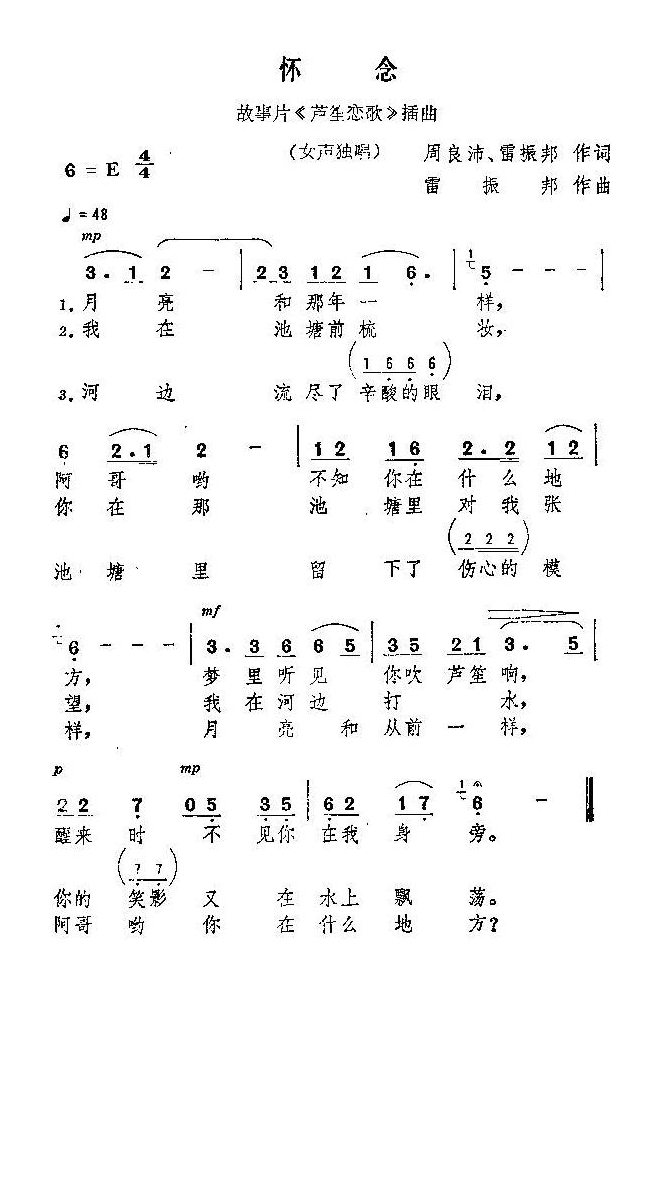 怀 念
故事片《芦笙恋歌》插曲
(女声独唱) 周良沛、雷振邦 作词
6 = E 4/4
雷 振 邦 作曲
♩= 48
mp
3. 1 2 - | 2 3 1 2 1 6. | 5 - - - |
1. 月 亮 和那年一 样,
2. 我 在 池塘前梳 妆,
(1 6 6 6)
3. 河 边 流尽了辛酸的眼 泪,
6 2. 1 2 - | 1 2 1 6 2. 2 1 2 |
阿 哥 哟 不知 你在 什么 地
你 在 那 池 塘里 对我 张
(2 2 2)
池 塘 里 留 下了 伤心的 模
mf
6 - - - | 3. 3 6 6 5 | 3 5 2 1 3. 5 |
方, 梦 里听见 你吹 芦笙 啊,
望, 我 在河边 打 水,
样, 月 亮 和 从前 一 样,
p mp
2 2 7 0 5 3 5 | 6 2 1 7 6 - ‖
醒来 时 不 见你 在我 身 旁。
(7 7)
你的 笑影 又 在 水上 飘 荡。
阿哥 哟 你 在 什么 地 方?